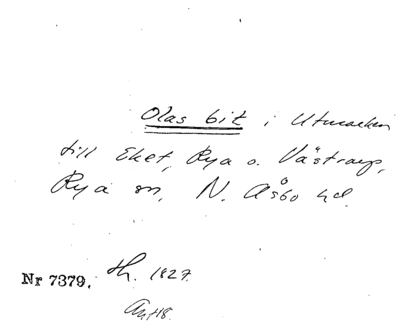 Olas bit i Utmarken
till Eket, Rya o. Västrarp,
Rya sn, N. Åsbo hd.
Nr 7379. Sh. 1827.